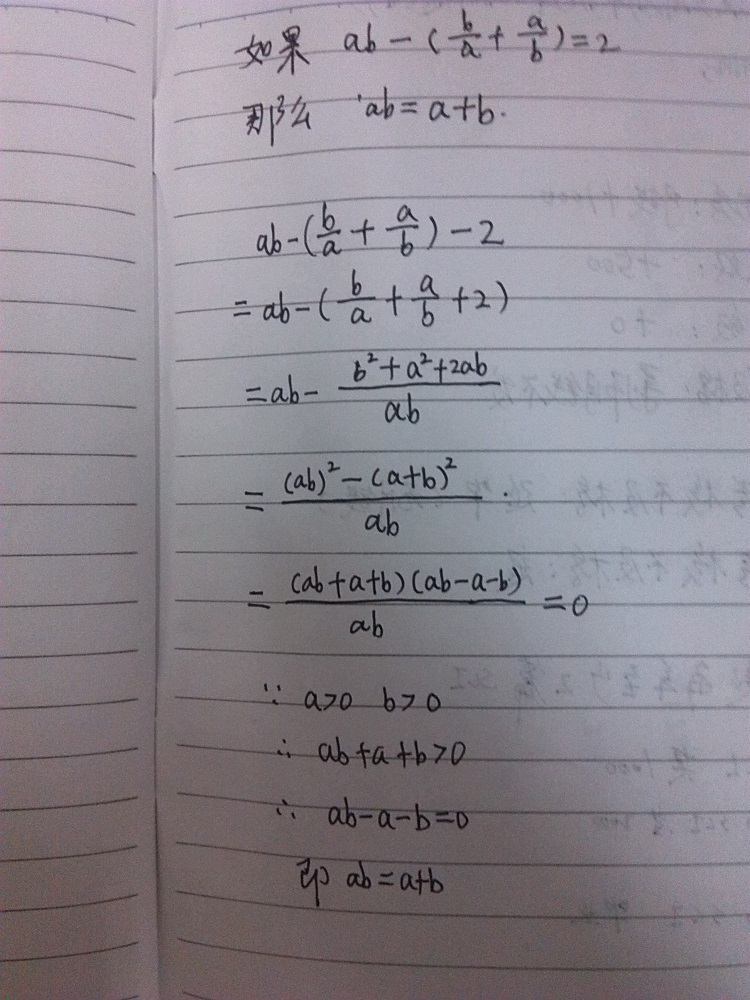 如果 ab - (b/a + a/b) = 2
那么 ab = a+b.
ab - (b/a + a/b) - 2
= ab - (b/a + a/b + 2)
= ab - (b²+a²+2ab)/ab
= ((ab)² - (a+b)²)/ab.
= (ab+a+b)(ab-a-b)/ab = 0
∵ a>0 b>0
∴ ab+a+b>0
∴ ab-a-b=0
即 ab=a+b